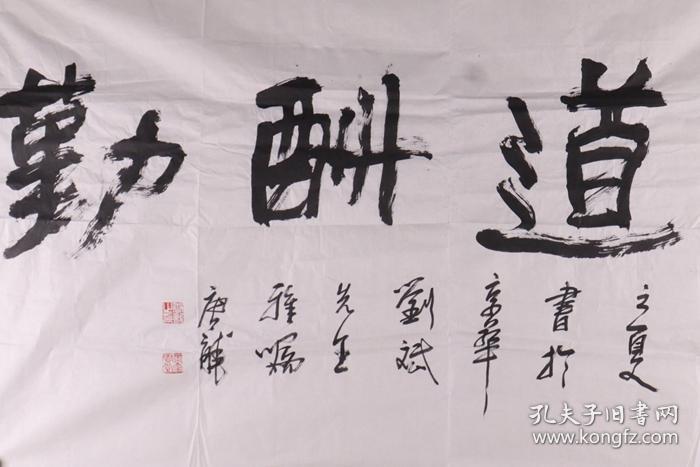 道酬勤
之夏
書於
京華
劉斌
先生
雅囑
唐龍
孔夫子旧书网
www.kongfz.com